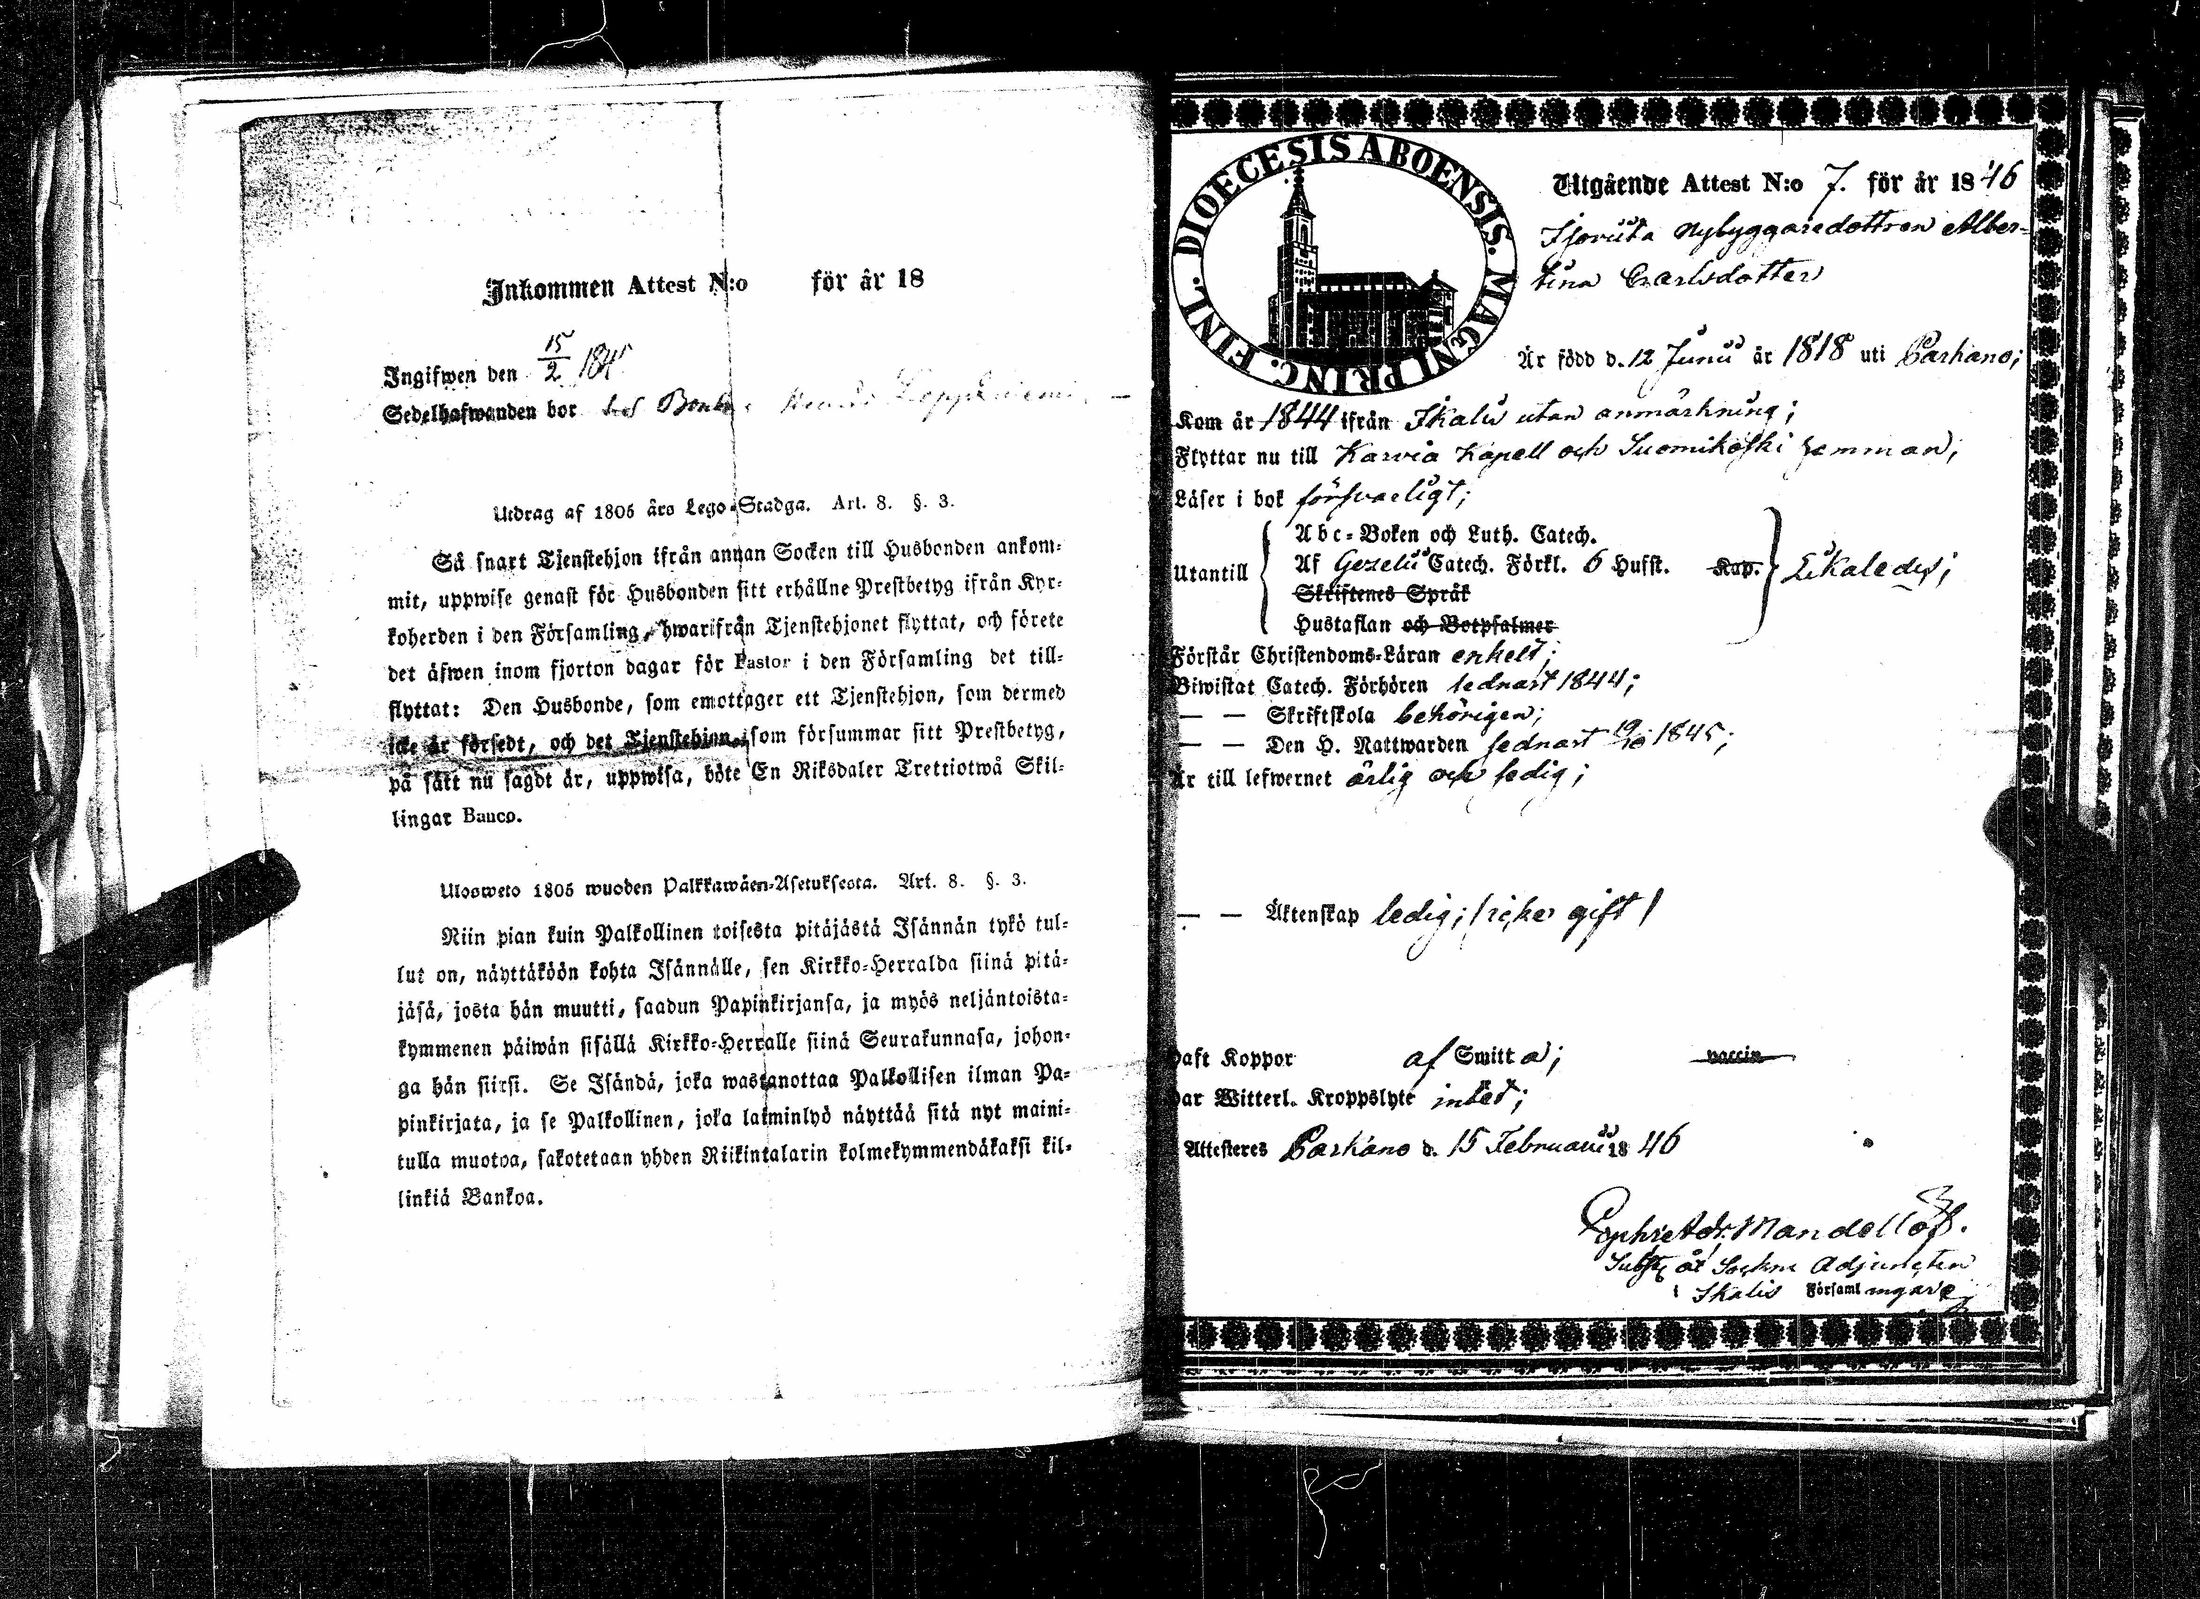 Inkommen Attest N:o för år 18
Ingifwen den 15/2 184
Sedelhafwanden bor hos
Utdrag af 1805 års Lego-Stadga. Art. 8. §. 3.
Så snart Tjenstehjon ifrån annan Socken till Husbonden ankom-
mit, uppwise genast för Husbonden sitt erhållne Prestbetyg ifrån Kyr-
koherden i den Församling, hwarifrån Tjenstehjonet flyttat, och förete
det äfwen inom fjorton dagar för Pastor i den Församling det till-
flyttat: Den Husbonde, som emottager ett Tjenstehjon, som dermed
icke är försedt, och det Tjenstehjon, som försummar sitt Prestbetyg,
på sätt nu sagdt är, uppwisa, böte En Riksdaler Trettiotwå Skil-
lingar Banco.
Ulosweto 1805 wuoden Palkkawäen-Asetuksesta. Art. 8. §. 3.
Niin pian kuin Palkollinen toisesta pitäjästä Isännän tykö tul-
lut on, näyttäköön kohta Isännälle, sen Kirkko-Herralda siinä pitä-
jäsä, josta hän muutti, saadun Papinkirjansa, ja myös neljäntoista-
kymmenen päiwän sisällä Kirkko-Herralle siinä Seurakunnasa, johon-
ga hän siirsi. Se Isändä, joka wastanottaa Palkollisen ilman Pa-
pinkirjata, ja se Palkollinen, joka laiminlyö näyttää sitä nyt maini-
tulla muotoa, sakotetaan yhden Riikintalarin kolmekymmendäkaksi kil-
linkiä Bankoa.
DIOECESIS ABOENSIS. MAGNI PRINC. FINL.
Utgående Attest N:o 7. för år 1846
nybyggaredottren Alber-
tina Carlsdotter
Är född d. 12 Junii år 1818 uti Parkano;
Kom år 1844 ifrån Ikalis utan anmärkning;
Flyttar nu till Karvia Kapell och Suomikoski hemman;
Läser i bok försvarligt;
Abc-Boken och Luth. Catech.
Utantill Af Gezelii Catech. Förkl. 6 Hufst. Kap.
Skriftenes Språk
Hustaflan och Botpsalmer
Förstår Christendoms-Läran enkelt;
Biwistat Catech. Förhören sednast 1844;
— — Skriftskola behörigen;
— — Den H. Nattwarden sednast 19/10 1845;
Är till lefwernet ärlig och ledig;
— — Äktenskap ledig; gift
Haft Koppor af Smitta; vaccin
Har Witterl. Kroppslyte intet;
Attesteres Parkano d. 15 Februarii 1846
Mandellöf.
Sockne Adjuncten
i Ikalis Församlingar